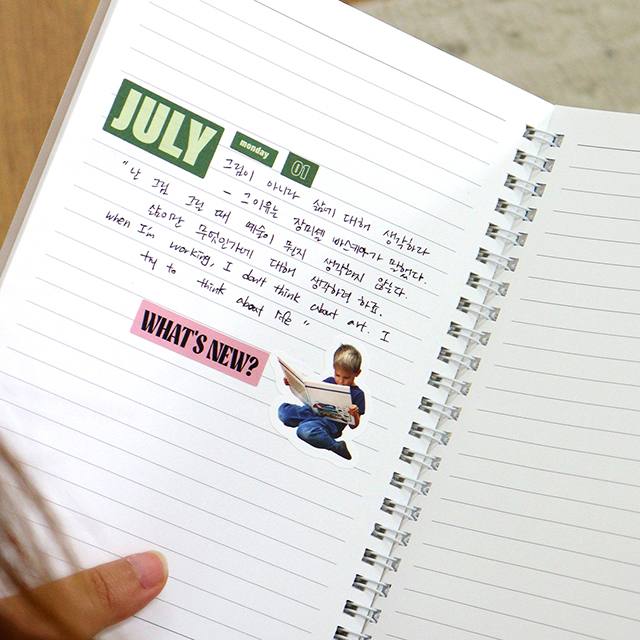 JULY
monday
01
그림이 아니라 삶에 대해 생각하라
- 그 이유를 장미셸 바스키아가 말했다.
"난 그림 그릴 때 예술이 뭔지 생각하지 않는다.
삶이란 무엇인가에 대해 생각하려 하죠.
when I'm working, I don't think about art. I
try to think about life "
WHAT'S NEW?